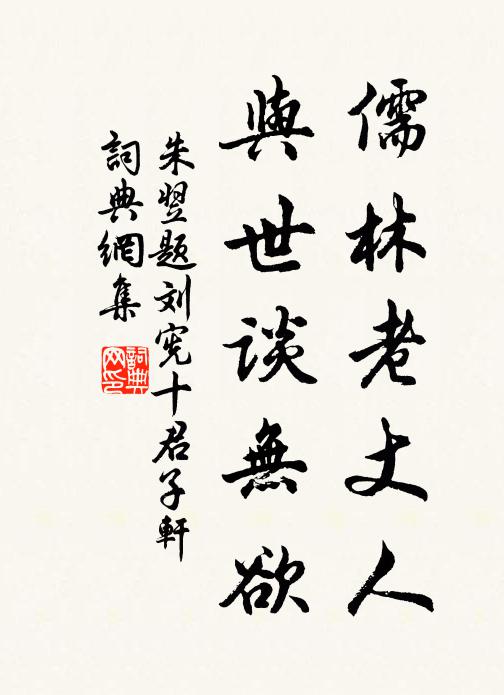 儒林老丈人
與世談無欲
朱翌题刘宪十君子軒
詞典網集
詞典网印